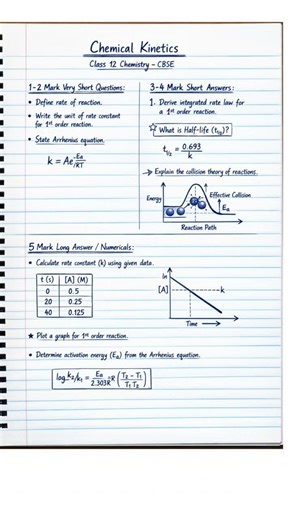 Chemical Kinetics
Class 12 Chemistry - CBSE
1-2 Mark Very Short Questions:
• Define rate of reaction.
• Write the unit of rate constant
for 1st order reaction.
• State Arrhenius equation.
k = Ae -Ea/RT
3-4 Mark Short Answers:
1. Derive integrated rate law for
a 1st order reaction.
☆ What is Half-life (t1/2)?
t1/2 = 0.693/k
→ Explain the collision theory of reactions.
Energy
Effective Collision
Ea
Reaction Path
5 Mark Long Answer / Numericals:
• Calculate rate constant (k) using given data.
t (s) [A] (M)
0 0.5
20 0.25
40 0.125
ln
[A]
k
Time →
★ Plot a graph for 1st order reaction.
• Determine activation energy (Ea) from the Arrhenius equation.
log k2/k1 = Ea/2.303R (T2 - T1/T1 T2)